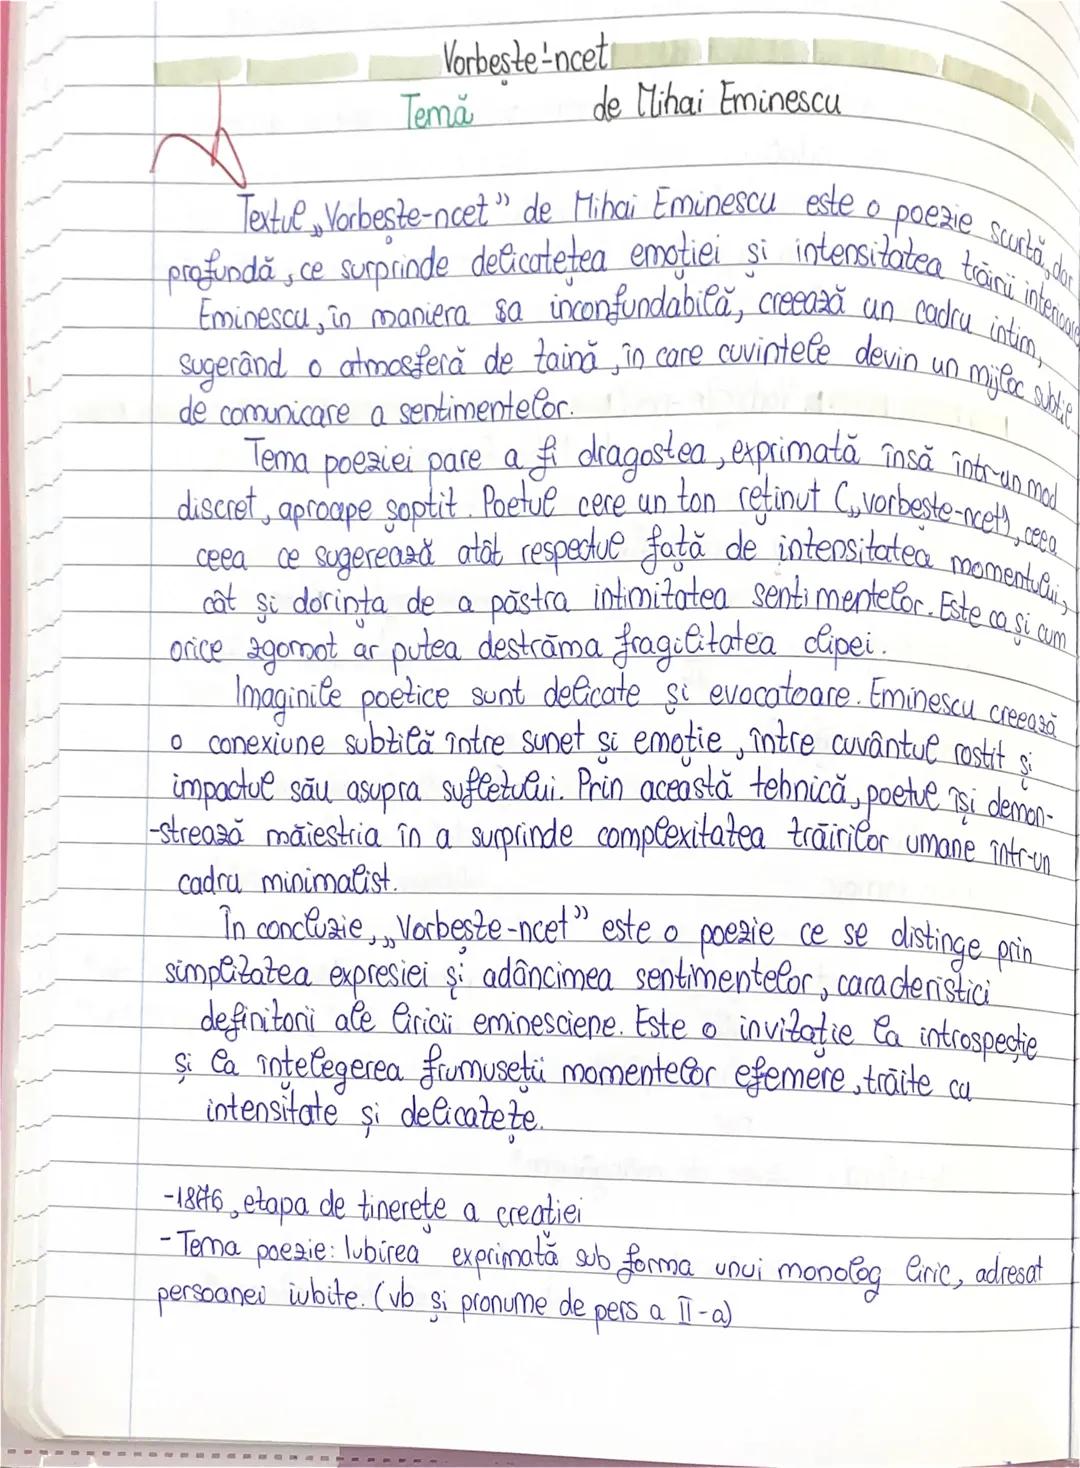 Vorbește-ncet
Temă
de Mihai Eminescu
Textul „Vorbește-ncet” de Mihai Eminescu este o poezie scurtă, dar
profundă, ce surprinde delicatețea emoției și intensitatea trăirii interioare
Eminescu, în maniera sa inconfundabilă, creează un cadru intim,
sugerând o atmosferă de taină, în care cuvintele devin un mijloc subtil
de comunicare a sentimentelor.
Tema poeziei pare a fi dragostea, exprimată însă într-un mod
discret, aproape șoptit. Poetul cere un ton reținut („vorbește-ncet”), ceea
ceea ce sugerează atât respectul față de intensitatea momentului,
cât și dorința de a păstra intimitatea sentimentelor. Este ca și cum
orice zgomot ar putea destrăma fragilitatea clipei.
Imaginile poetice sunt delicate și evocatoare. Eminescu creează
o conexiune subtilă între sunet și emoție, între cuvântul rostit și
impactul său asupra sufletului. Prin această tehnică, poetul își demon-
-strează măiestria în a surprinde complexitatea trăirilor umane într-un
cadru minimalist.
În concluzie, „Vorbește-ncet” este o poezie ce se distinge prin
simplitatea expresiei și adâncimea sentimentelor, caracteristici
definitorii ale liricii eminesciene. Este o invitație la introspecție
și la înțelegerea frumuseții momentelor efemere, trăite cu
intensitate și delicatețe.
-1876, etapa de tinerețe a creației
-Tema poezie: Iubirea exprimată sub forma unui monolog liric, adresat
persoanei iubite. (vb și pronume de pers a II-a)